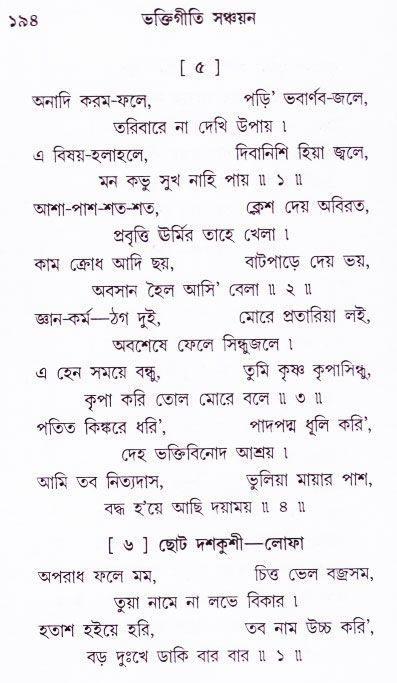 ১৯৪ ভক্তিগীতি সঞ্চয়ন
[ ৫ ]
অনাদি করম-ফলে, পড়ি' ভবার্ণব-জলে,
তরিবারে না দেখি উপায় ৷
এ বিষয়-হলাহলে, দিবানিশি হিয়া জ্বলে,
মন কভু সুখ নাহি পায় ॥ ১ ॥
আশা-পাশ-শত-শত, ক্লেশ দেয় অবিরত,
প্রবৃত্তি ঊর্মির তাহে খেলা ৷
কাম ক্রোধ আদি ছয়, বাটপাড়ে দেয় ভয়,
অবসান হৈল আসি' বেলা ॥ ২ ॥
জ্ঞান-কর্ম—ঠগ দুই, মোরে প্রতারিয়া লই,
অবশেষে ফেলে সিন্ধুজলে ৷
এ হেন সময়ে বন্ধু, তুমি কৃষ্ণ কৃপাসিন্ধু,
কৃপা করি তোল মোরে বলে ॥ ৩ ॥
পতিত কিঙ্করে ধরি', পাদপদ্ম ধূলি করি',
দেহ ভক্তিবিনোদ আশ্রয় ৷
আমি তব নিত্যদাস, ভুলিয়া মায়ার পাশ,
বদ্ধ হ'য়ে আছি দয়াময় ॥ ৪ ॥
[ ৬ ] ছোট দশকুশী—লোফা
অপরাধ ফলে মম, চিত্ত ভেল বজ্রসম,
তুয়া নামে না লভে বিকার ৷
হতাশ হইয়ে হরি, তব নাম উচ্চ করি',
বড় দুঃখে ডাকি বার বার ॥ ১ ॥